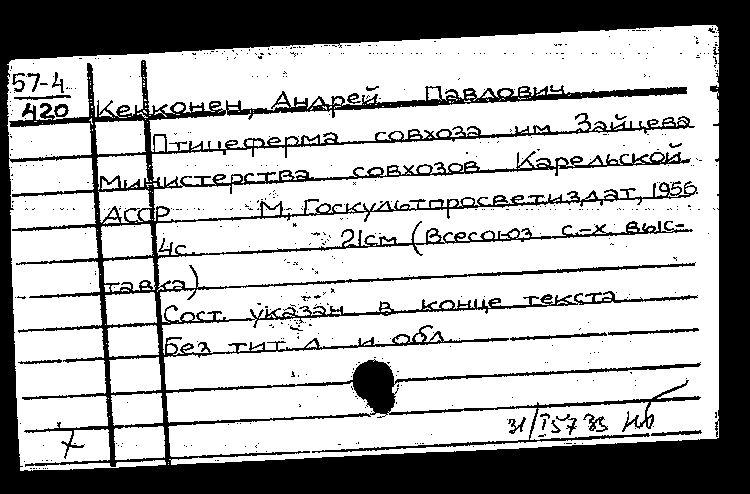 57-4
420
Кекконен, Андрей Павлович.
Птицеферма совхоза им Зайцева
Министерства совхозов Карельской
АССР М, Госкультпросветиздат, 1956
4с. 21см (Всесоюз с-х выс-
тавка)
Сост. указан в конце текста
Без тит. л. и обл.
31/I 57